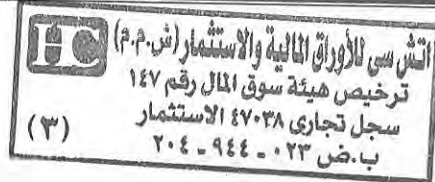 اتش سى للأوراق المالية والاستثمار (ش.م.م)
HC
ترخيص هيئة سوق المال رقم ١٤٧
سجل تجارى ٤٧٠٣٨ الاستثمار
ب.ض ٠٢٣ - ٩٤٤ - ٢٠٤
(٣)